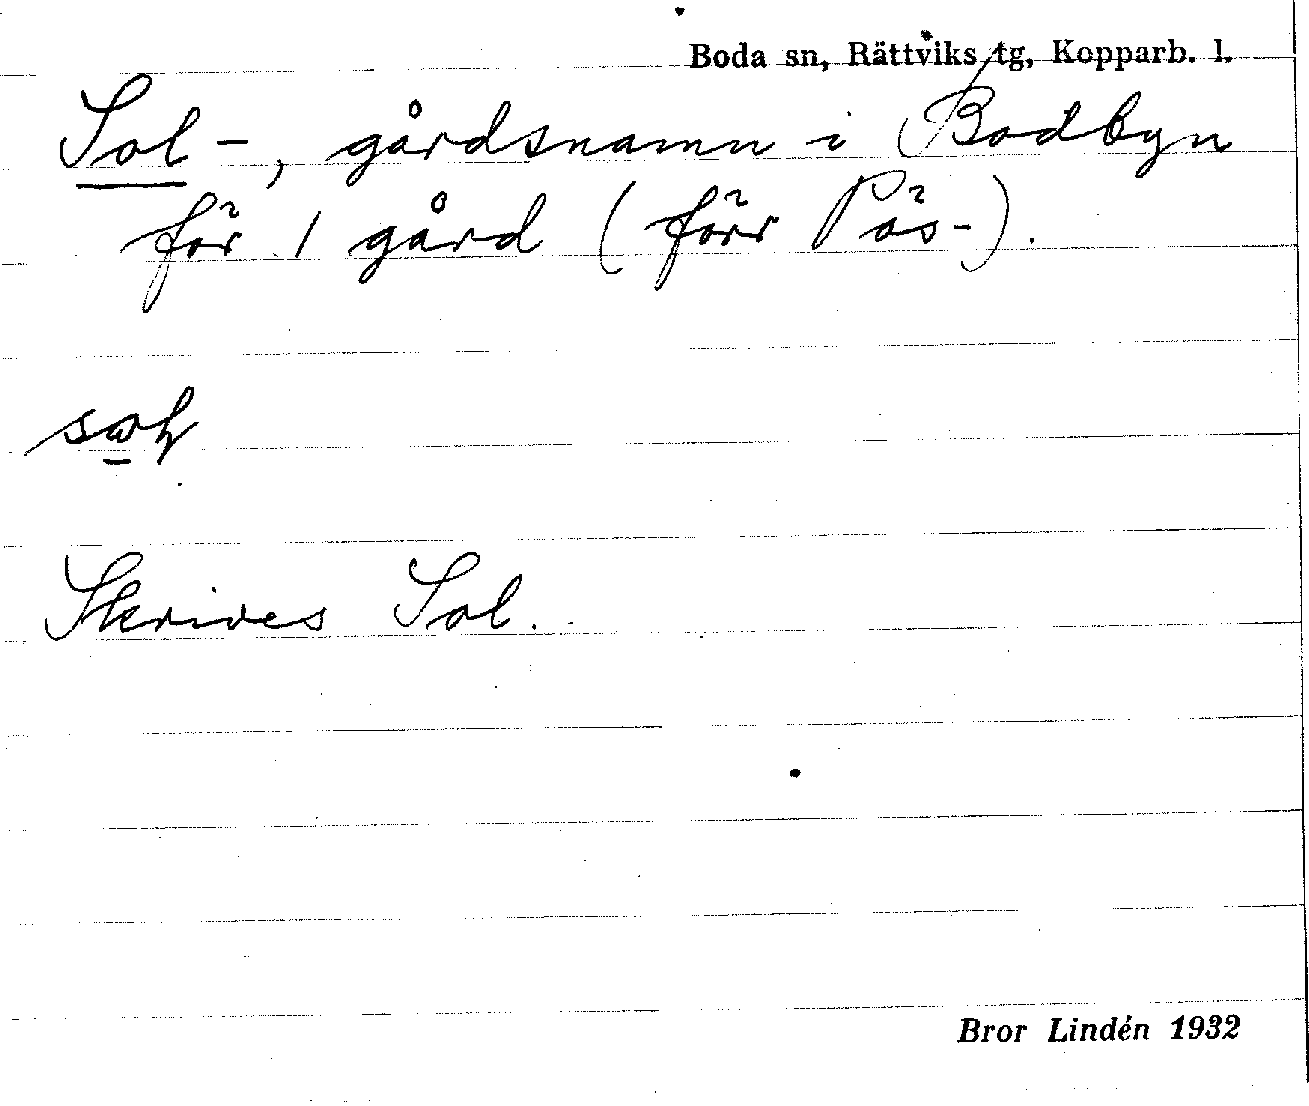 Boda sn, Rättviks tg, Kopparb. l.
Sol-, gårdsnamn i Bodbyn
för 1 gård (förr Pös-).
Skrives Sol.
Bror Lindén 1932